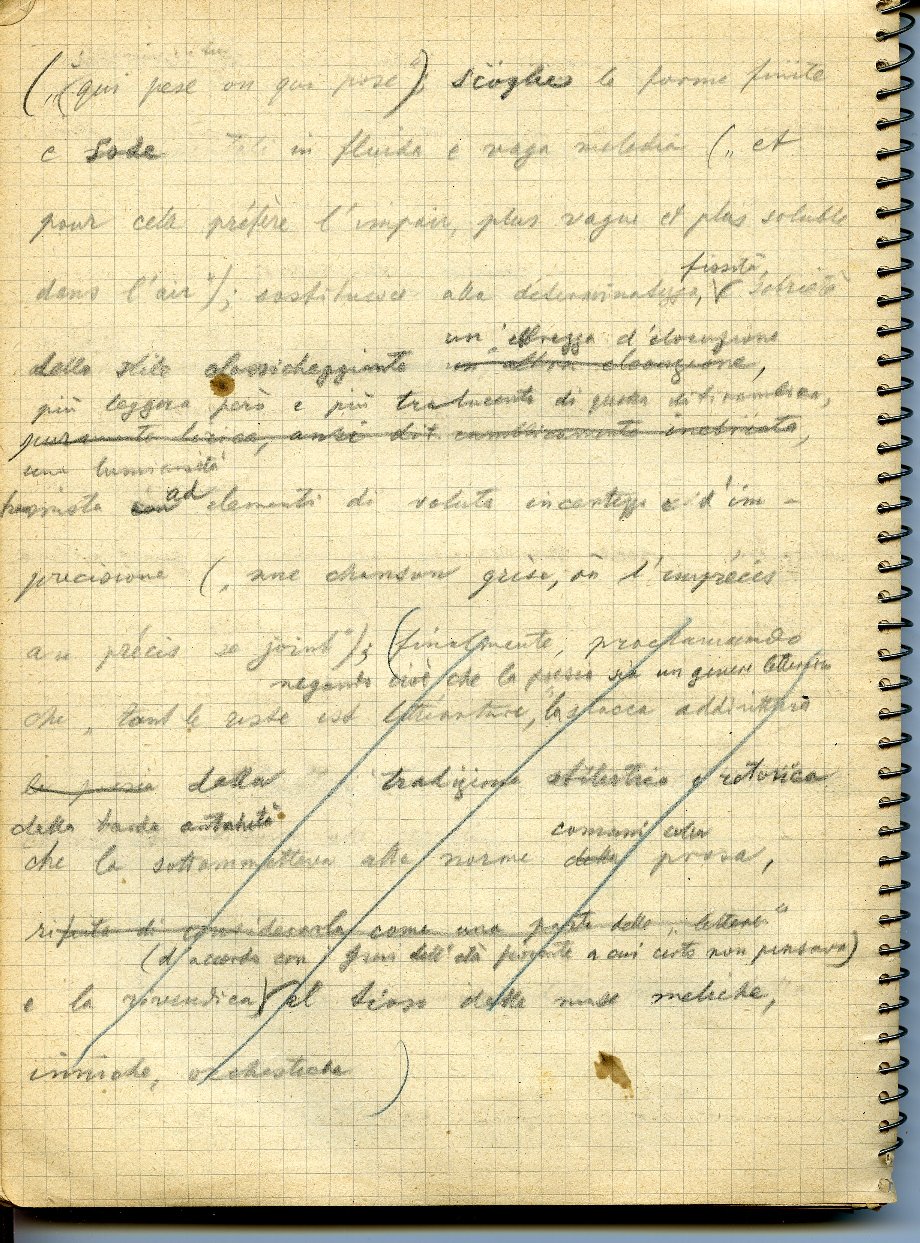 („qui pèse ou qui pose"); scioglie le forme finite
e sode in fluida e vaga melodia („et
pour cela préfère l'impair, plus vague et plus soluble
dans l'air"); sostituisce alla determinatezza,
fissità,
sobrietà
un'ebrezza d'elocuzione
dello stile classicheggiante un'altra elocuzione,
più leggera però e più tralucente di quella ditirambica,
puramente lirica, anzi
inebriata,
una luminosità
mista con ad elementi di voluta incertezza e d'im-
precisione („une chanson grise, où l'imprécis
au précis se joint"); (finalmente, proclamando
negando cioè che la poesia sia un genere letterario
che „tout le reste est littérature", la stacca addirittura
la poesia dalla tradizione stilistica e retorica
della tarda antichità
comuni colla
che la sottometteva alle norme della prosa,
rifiuta di considerarla come una parte delle „lettere"
(d'accordo con i Greci dell'età a cui certo non pensava)
e la rivendica al tiaso delle muse meliche,
inniche, orchestiche)